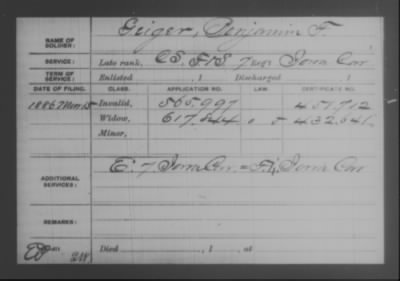 NAME OF SOLDIER: Geiger, Benjamin F.
SERVICE: Late rank, Co. F & S, 7 Reg't Iowa Cav
TERM OF SERVICE: Enlisted , 1 Discharged , 1
DATE OF FILING. CLASS. APPLICATION NO. LAW. CERTIFICATE NO.
1886 Nov. 15 Invalid, 565.997 451,712
Widow, 617.844 432,641
Minor,
ADDITIONAL SERVICES: E. 7 Iowa Cav. Iowa Cav
REMARKS:
Died , 1 , at